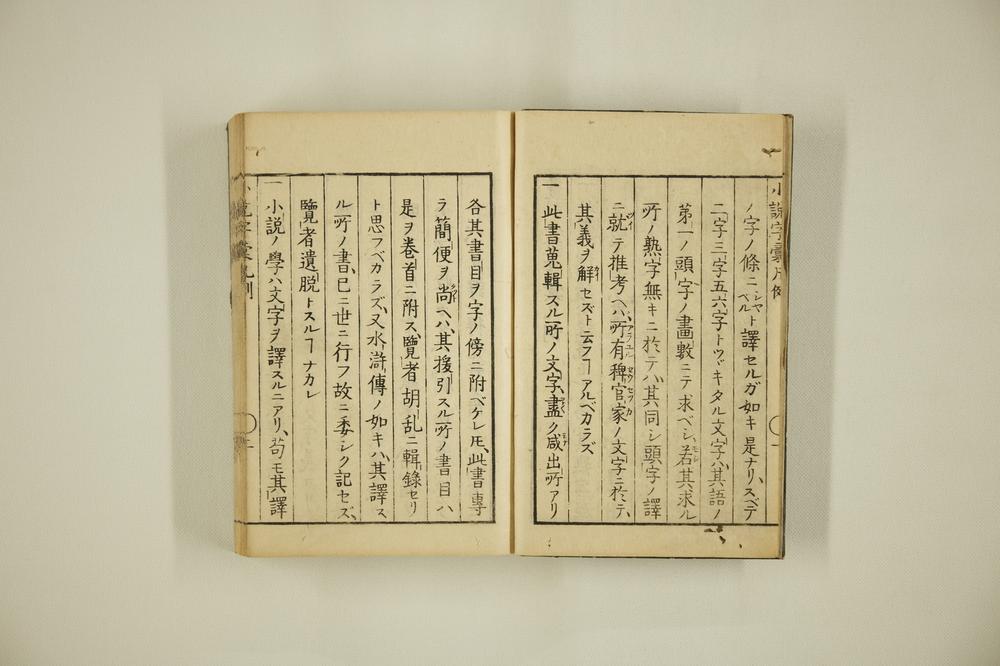 小説字彙凡例
ノ字ノ條ニシヤベルト譯セルガ如キ是ナリ、スベテ
二字三字五六字トツヾキタル文字ハ、其語ノ
第一ノ頭字ノ畫數ニテ求ベシ、若其求ル
所ノ熟字無キニ於テハ、其同シ頭字ノ譯
ニ就テ推考ヘハ、所有稗官家ノ文字ニ於テ、
其義ヲ解セズト云フヿアルベカラズ
一此書蒐輯スル所ノ文字、盡ク咸出所アリ
各其書目ヲ字ノ傍ニ附ベケレ𪜈、此書專
ラ簡便ヲ尚ヘハ、其援引スル所ノ書目ハ
是ヲ卷首ニ附ス、覽者胡乱ニ輯録セリ
ト思フベカラズ、又水滸傳ノ如キハ、其譯ス
ル所ノ書、巳ニ世ニ行フ故ニ委シク記セズ、
覽者遺脱トスルヿナカレ
一小説ノ學ハ文字ヲ譯スルニアリ、苟モ其譯